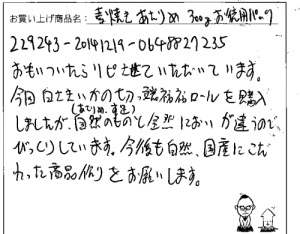 お買い上げ商品名： 素焼きあたりめ 300g お徳用パック
229243-20141219-0648827235
おもいついたらリピさせていただいています。
今回 白さきいかの切っ端 ロールを購入
(あたりめ、するめ)
しましたが、自然のものと全然においが違うので
びっくりしています。今後も自然、国産にこだ
わった商品作りをお願いします。